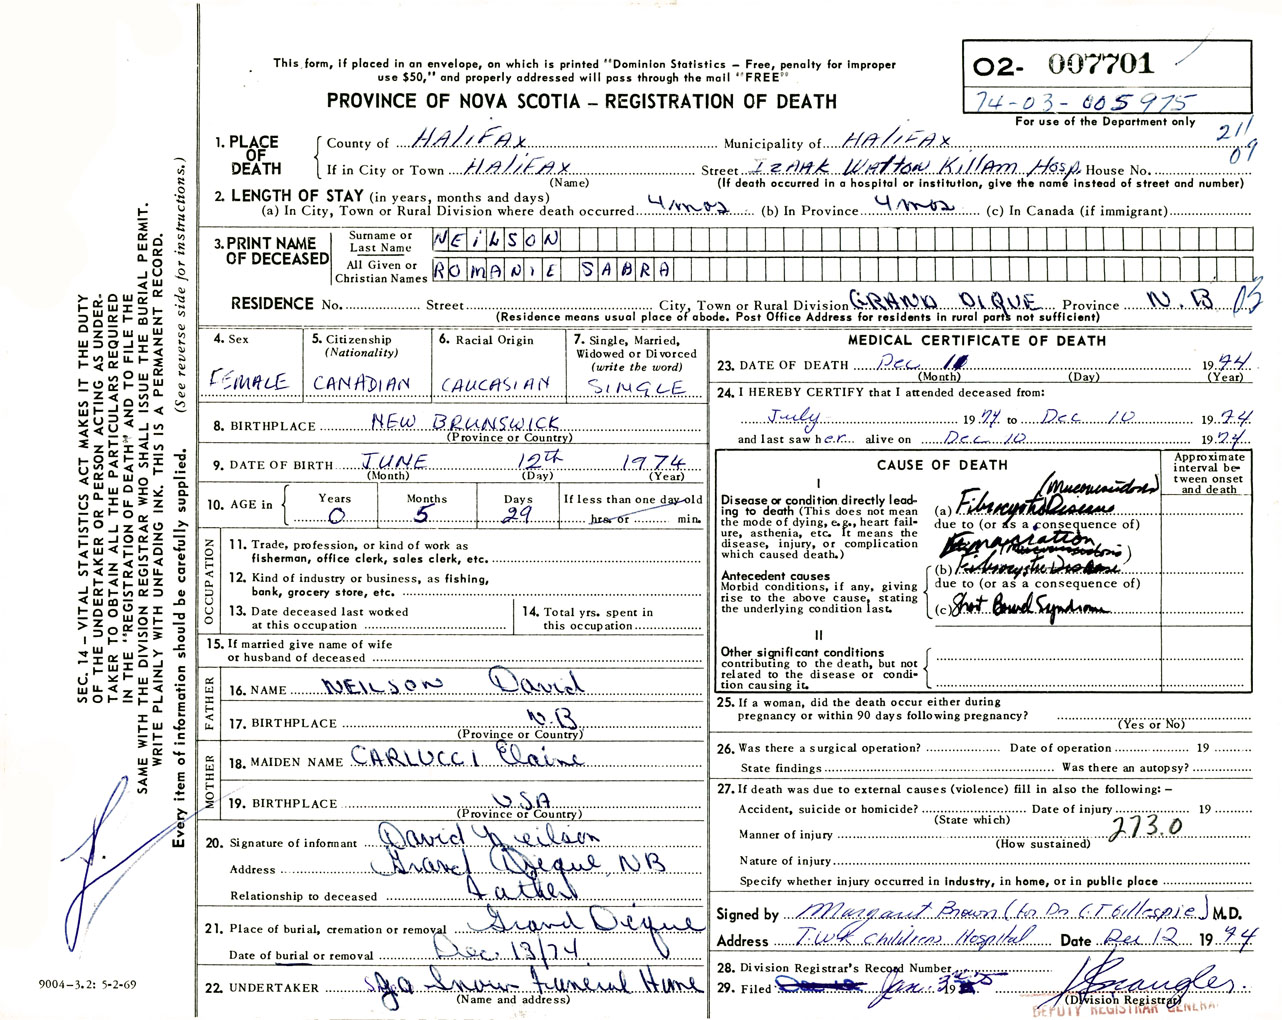 This form, if placed in an envelope, on which is printed "Dominion Statistics – Free, penalty for improper
use $50," and properly addressed will pass through the mail "FREE"
PROVINCE OF NOVA SCOTIA – REGISTRATION OF DEATH
02- 007701
74-03-005975
For use of the Department only
211
09
1. PLACE OF DEATH
County of HALIFAX Municipality of HALIFAX
If in City or Town HALIFAX Street IZAAK WALTON Killam Hosp. House No.
(Name) (If death occurred in a hospital or institution, give the name instead of street and number)
2. LENGTH OF STAY (in years, months and days)
(a) In City, Town or Rural Division where death occurred 4 mos (b) In Province 4 mos (c) In Canada (if immigrant)
3. PRINT NAME OF DECEASED
Surname or Last Name NEILSON
All Given or Christian Names ROMANIE SABRA
RESIDENCE No. Street City, Town or Rural Division GRAND DIQUE Province N.B. 03
(Residence means usual place of abode. Post Office Address for residents in rural parts not sufficient)
4. Sex
FEMALE
5. Citizenship
(Nationality)
CANADIAN
6. Racial Origin
CAUCASIAN
7. Single, Married,
Widowed or Divorced
(write the word)
SINGLE
8. BIRTHPLACE NEW BRUNSWICK
(Province or Country)
9. DATE OF BIRTH JUNE 12th 1974
(Month) (Day) (Year)
10. AGE in
Years Months Days If less than one day old
0 5 29 hrs. or min.
OCCUPATION
11. Trade, profession, or kind of work as
fisherman, office clerk, sales clerk, etc.
12. Kind of industry or business, as fishing,
bank, grocery store, etc.
13. Date deceased last worked
at this occupation
14. Total yrs. spent in
this occupation
15. If married give name of wife
or husband of deceased
FATHER
16. NAME NEILSON David
17. BIRTHPLACE N.B
(Province or Country)
MOTHER
18. MAIDEN NAME CARLUCCI Elaine
19. BIRTHPLACE USA
(Province or Country)
20. Signature of informant David Neilson
Address Grand Digue, NB
Relationship to deceased Father
21. Place of burial, cremation or removal Grand Digue
Date of burial or removal Dec. 13/74
22. UNDERTAKER Snow Funeral Home
(Name and address)
MEDICAL CERTIFICATE OF DEATH
23. DATE OF DEATH Dec 10 1974
(Month) (Day) (Year)
24. I HEREBY CERTIFY that I attended deceased from:
July 1974 to Dec 10 1974
and last saw her alive on Dec 10 1974
CAUSE OF DEATH
Approximate
interval be-
tween onset
and death
I
Disease or condition directly lead-
ing to death (This does not mean
the mode of dying, e.g., heart fail-
ure, asthenia, etc. It means the
disease, injury, or complication
which caused death.)
(Mucoviscidosis)
(a) Fibrocystic Disease
due to (or as a consequence of)
(Mucoviscidosis)
Antecedent causes
Morbid conditions, if any, giving
rise to the above cause, stating
the underlying condition last.
(b) Fibrocystic Disease
due to (or as a consequence of)
(c) Short Bowel Syndrome
II
Other significant conditions
contributing to the death, but not
related to the disease or condi-
tion causing it.
25. If a woman, did the death occur either during
pregnancy or within 90 days following pregnancy?
(Yes or No)
26. Was there a surgical operation? Date of operation 19
State findings Was there an autopsy?
27. If death was due to external causes (violence) fill in also the following: –
Accident, suicide or homicide? Date of injury 19
(State which)
Manner of injury 273.0
(How sustained)
Nature of injury
Specify whether injury occurred in industry, in home, or in public place
Signed by Margaret Brown (for Dr. C.T. Gillespie) M.D.
Address I.W.K Childrens Hospital Date Dec 12 1974
28. Division Registrar's Record Number
29. Filed Jan. 3 19
(Division Registrar)
DEPUTY REGISTRAR GENERAL
SEC. 14 – VITAL STATISTICS ACT MAKES IT THE DUTY
OF THE UNDERTAKER OR PERSON ACTING AS UNDER-
TAKER TO OBTAIN ALL THE PARTICULARS REQUIRED
IN THE "REGISTRATION OF DEATH" AND TO FILE THE
SAME WITH THE DIVISION REGISTRAR WHO SHALL ISSUE THE BURIAL PERMIT.
WRITE PLAINLY WITH UNFADING INK. THIS IS A PERMANENT RECORD.
Every item of information should be carefully supplied. (See reverse side for instructions.)
9004-3.2: 5-2-69